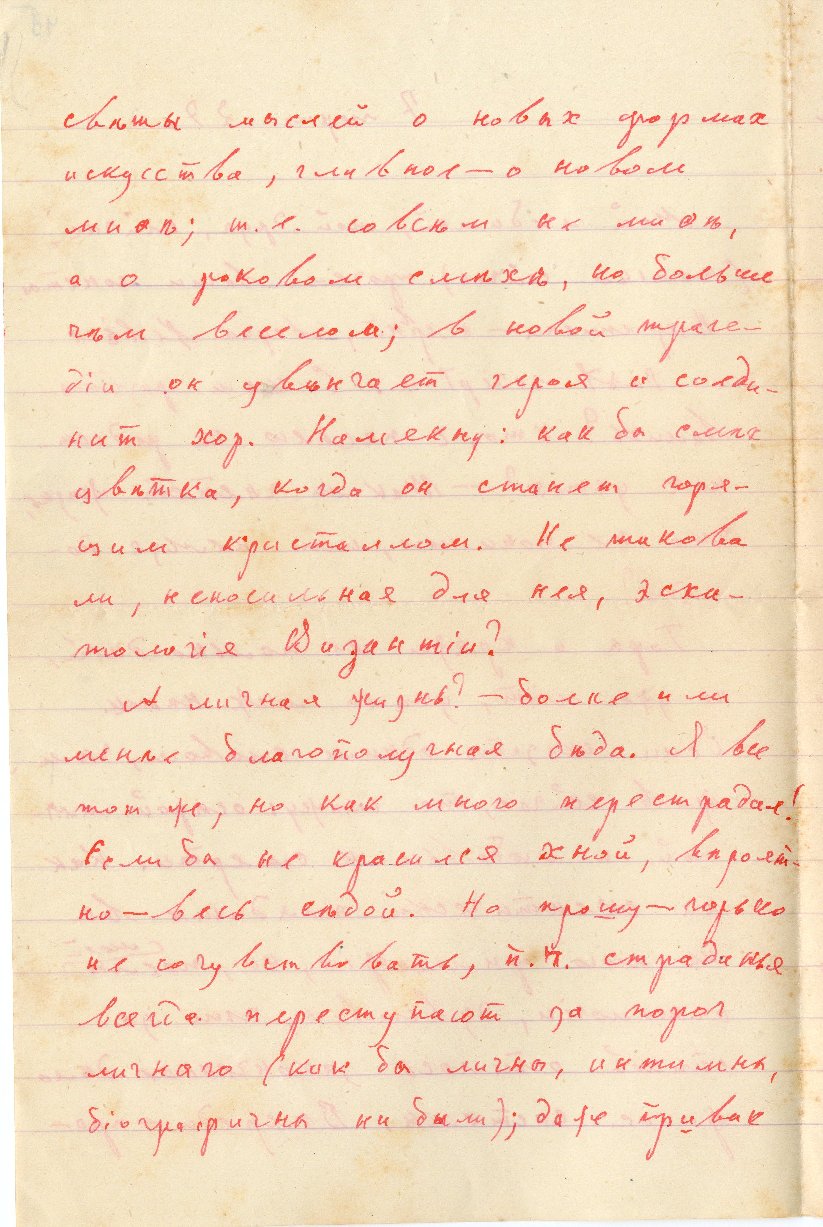 свѣты мыслей о новых формах
искусства, главное — о новом
миѳѣ; т.е. совсѣм не миѳѣ,
а о роковом смѣхѣ, но больше
чѣм веселом; в новой траге-
діи он увѣнчает героя и соеди-
нит хор. Намекну: как бы смѣх
цвѣтка, когда он станет горя-
щим кристаллом. Не такова
ли, непосильная для нея, эсха-
тологія Византіи?
А личная жизнь? — более или
менѣе благополучная бѣда. Я все
тот же, но как много перестрадал!
Если бы не красился хной, вѣроят-
но — весь сѣдой. Но прошу — горько
не сочувствовать, п.ч. страданья
всегда переступают за порог
личнаго (как бы личны, интимны,
біографичны ни были); даже привак